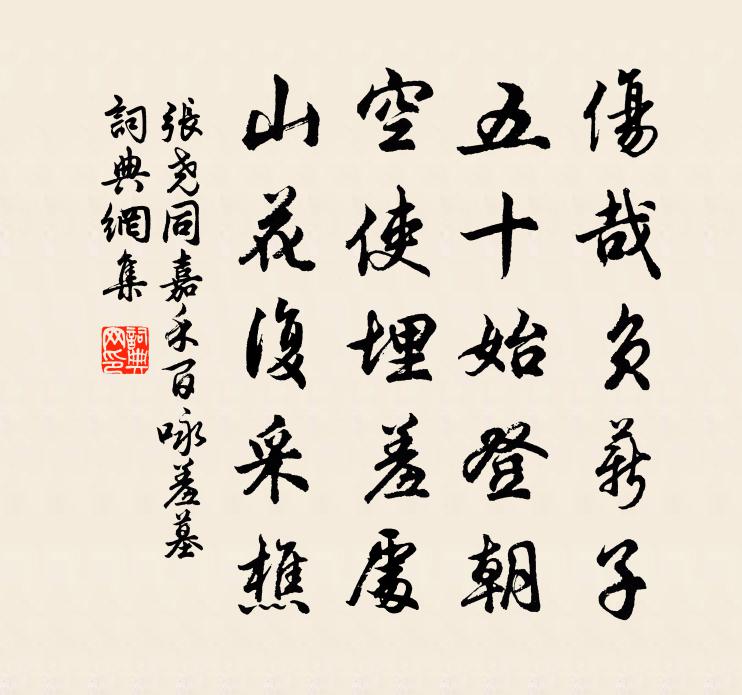 傷哉負薪子
五十始登朝
空使埋羞處
山花復采樵
張堯同嘉禾百咏羞墓
詞典網集
詞典網印